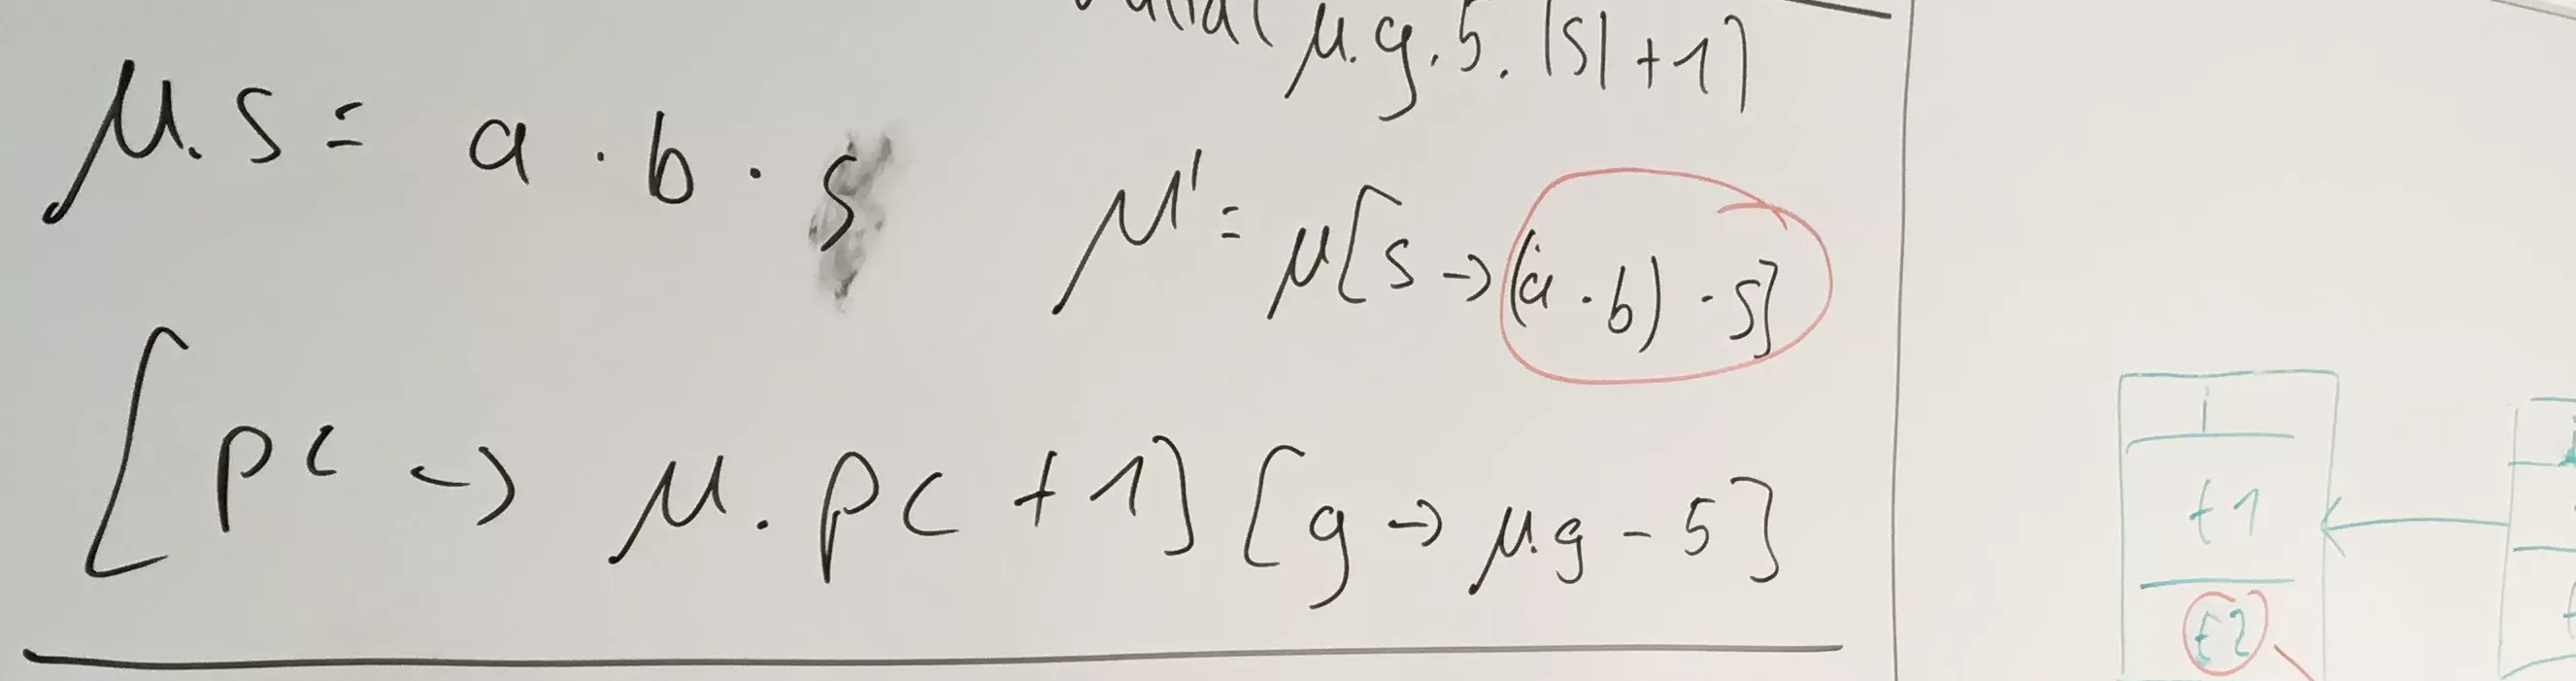 μ.g.5.|s|+1)
μ.s = a · b · s
μ' = μ[s → (a · b) · s]
[pc → μ.pc + 1] [g → μ.g - 5]
i
t1
t2